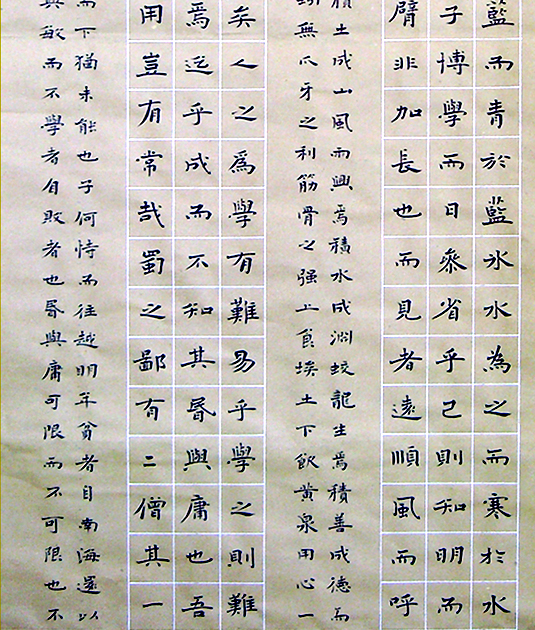 藍而青於藍冰水為之而寒於水
子博學而日參省乎己則知明而
臂非加長也而見者遠順風而呼
積土成山風雨興焉積水成淵蛟龍生焉積善成德而
無爪牙之利筋骨之强上食埃土下飲黃泉用心一
矣人之爲學有難易乎學之則難
焉迄乎成而不知其昏與庸也吾
用豈有常哉蜀之鄙有二僧其一
而下猶未能也子何恃而往越明年貧者自南海還以
敏而不學者自敗者也昏與庸可限而不可限也不